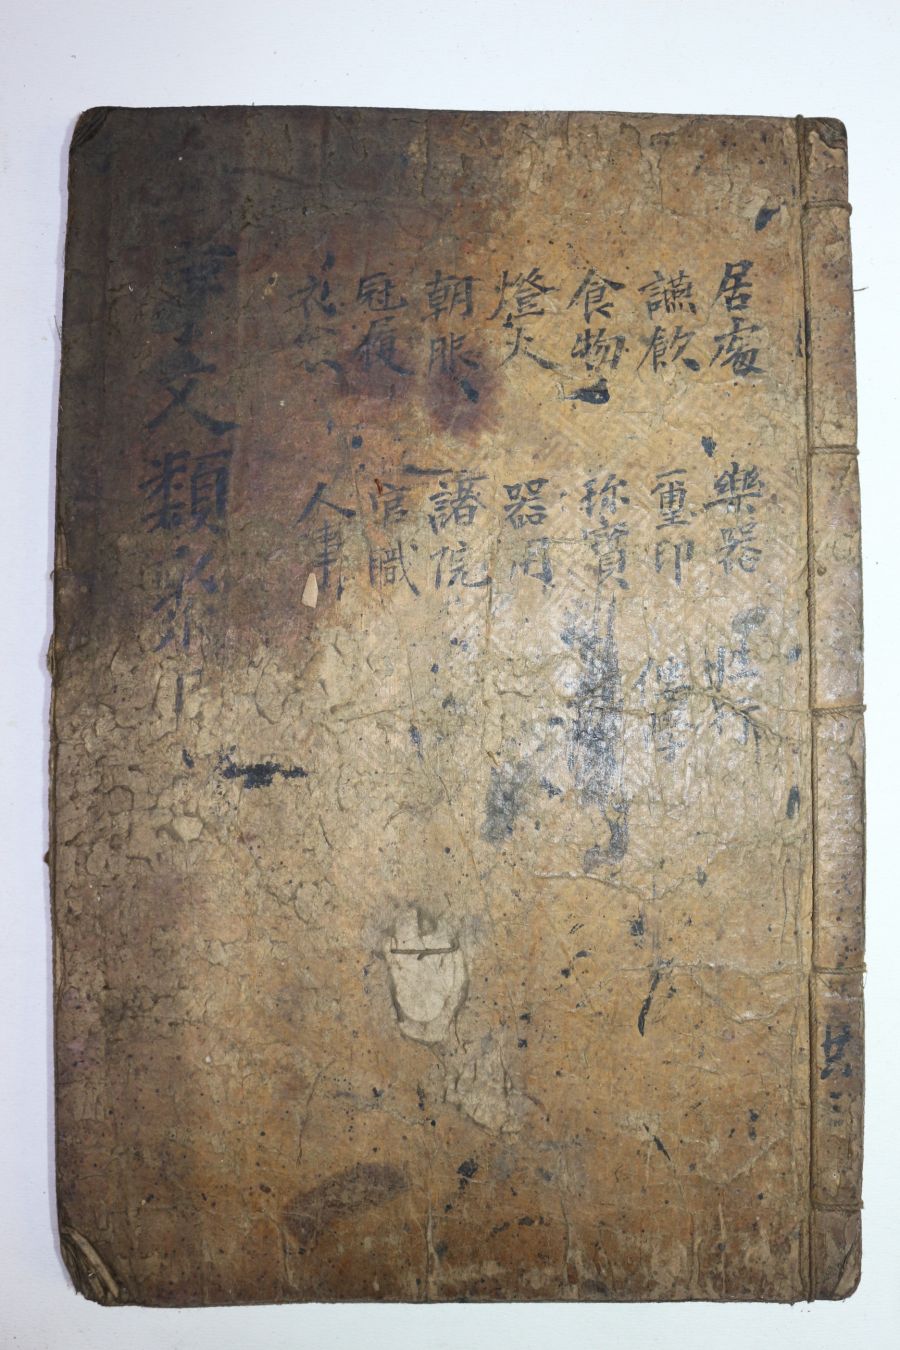 居處
讌飮
食物
燈火
朝服
冠履
衣
樂器
璽印
珎寶
器用
諸院
官職
人事
事文類聚
共